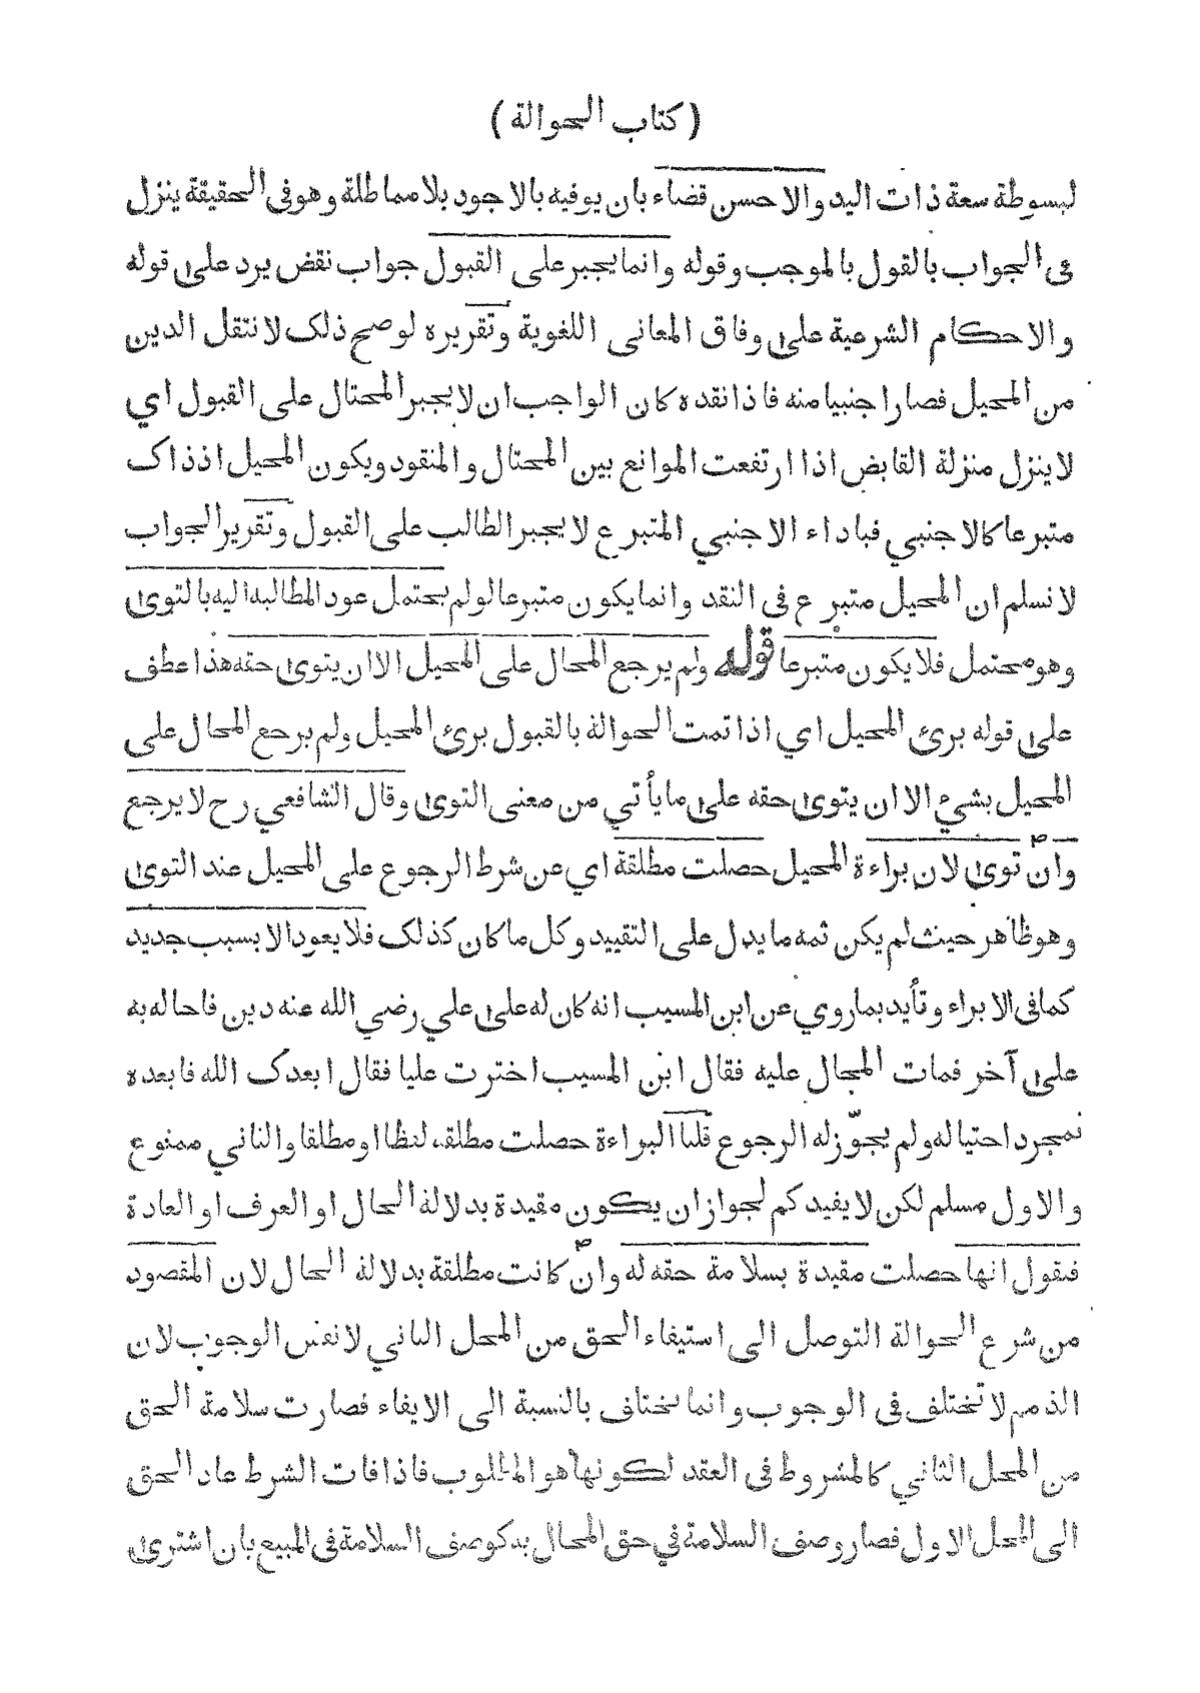 (كتاب الحوالة)
لبسوطة سعة ذات اليد والاحسن قضاء بان يوفيه بالاجود بلا مماطلة وهو فى الحقيقة ينزل
فى الجواب بالقول بالموجب وقوله وانما يجبر على القبول جواب نقض يرد على قوله
والاحكام الشرعية على وفاق المعانى اللغوية وتقريره لوصح ذلك لانتقل الدين
من المحيل فصار اجنبيا منه فاذا نقده كان الواجب ان لا يجبر المحتال على القبول اي
لا ينزل منزلة القابض اذا ارتفعت الموانع بين المحتال والمنقود ويكون المحيل اذ ذاك
متبرعا كالاجنبي فباداء الاجنبي المتبرع لا يجبر الطالب على القبول وتقرير الجواب
لا نسلم ان المحيل متبرع فى النقد وانما يكون متبرعا لولم يحتمل عود المطالبه اليه بالتوى
وهو محتمل فلا يكون متبرعا قوله ولم يرجع المحال على المحيل الا ان يتوى حقه هذا عطف
على قوله برئ المحيل اي اذا تمت الحوالة بالقبول برئ المحيل ولم يرجع المحال على
المحيل بشيء الا ان يتوى حقه على ما يأتي من معنى التوى وقال الشافعي رح لا يرجع
وان توى لان براءة المحيل حصلت مطلقة اي عن شرط الرجوع على المحيل عند التوى
وهو ظاهر حيث لم يكن ثمه ما يدل على التقييد وكل ما كان كذلك فلا يعود الا بسبب جديد
كما فى الابراء وتأيد بما روي عن ابن المسيب انه كان له على علي رضي الله عنه دين فاحاله به
على آخر فمات المحال عليه فقال ابن المسيب اخترت عليا فقال ابعدك الله فابعده
بمجرد احتياله ولم يجوّز له الرجوع قلنا البراءة حصلت مطلقة لفظا او مطلقا والثاني ممنوع
والاول مسلم لكن لا يفيدكم لجواز ان يكون مقيدة بدلالة الحال او العرف او العادة
فنقول انها حصلت مقيدة بسلامة حقه له وان كانت مطلقة بدلالة الحال لان المقصود
من شرع الحوالة التوصل الى استيفاء الحق من المحل الثاني لا نفس الوجوب لان
الذمم لا تختلف فى الوجوب وانما تختلف بالنسبة الى الايفاء فصارت سلامة الحق
من المحل الثاني كالمشروط فى العقد لكونها هو المطلوب فاذا فات الشرط عاد الحق
الى المحل الاول فصار وصف السلامة في حق المحال به كوصف السلامة فى المبيع بان اشترى